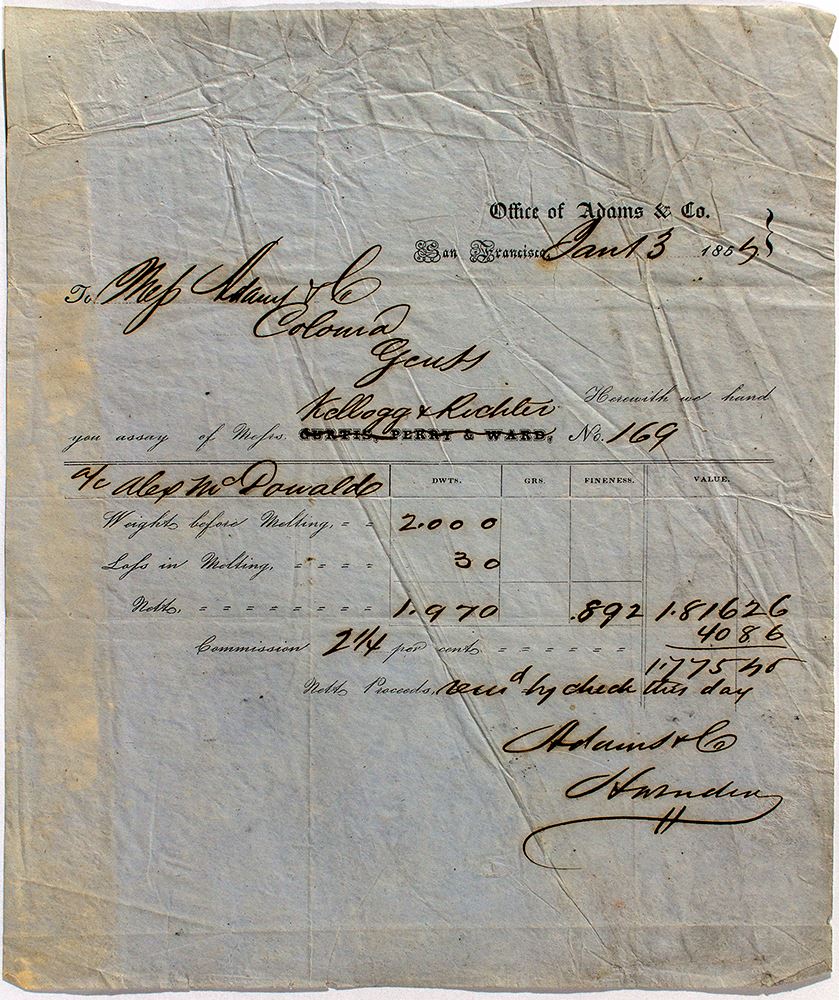 Office of Adams & Co.
San Francisco, Jany 3 1855
To Mess Adams & Co
Coloma
Gents
Herewith we hand
Kellogg & Richter
you assay of Messrs. CURTIS, PERRY & WARD, No. 169
a/c Alex McDonald DWTS. GRS. FINENESS. VALUE.
Weight before Melting, = = 2.000
Loss in Melting, = = = = 30
Nett, = = = = = = = = 1.970 .892 1.816 26
Commission 2 1/4 per cent = = = = = = 40 86
1.775 40
Nett Proceeds, remd by check this day
Adams & Co
Harnden